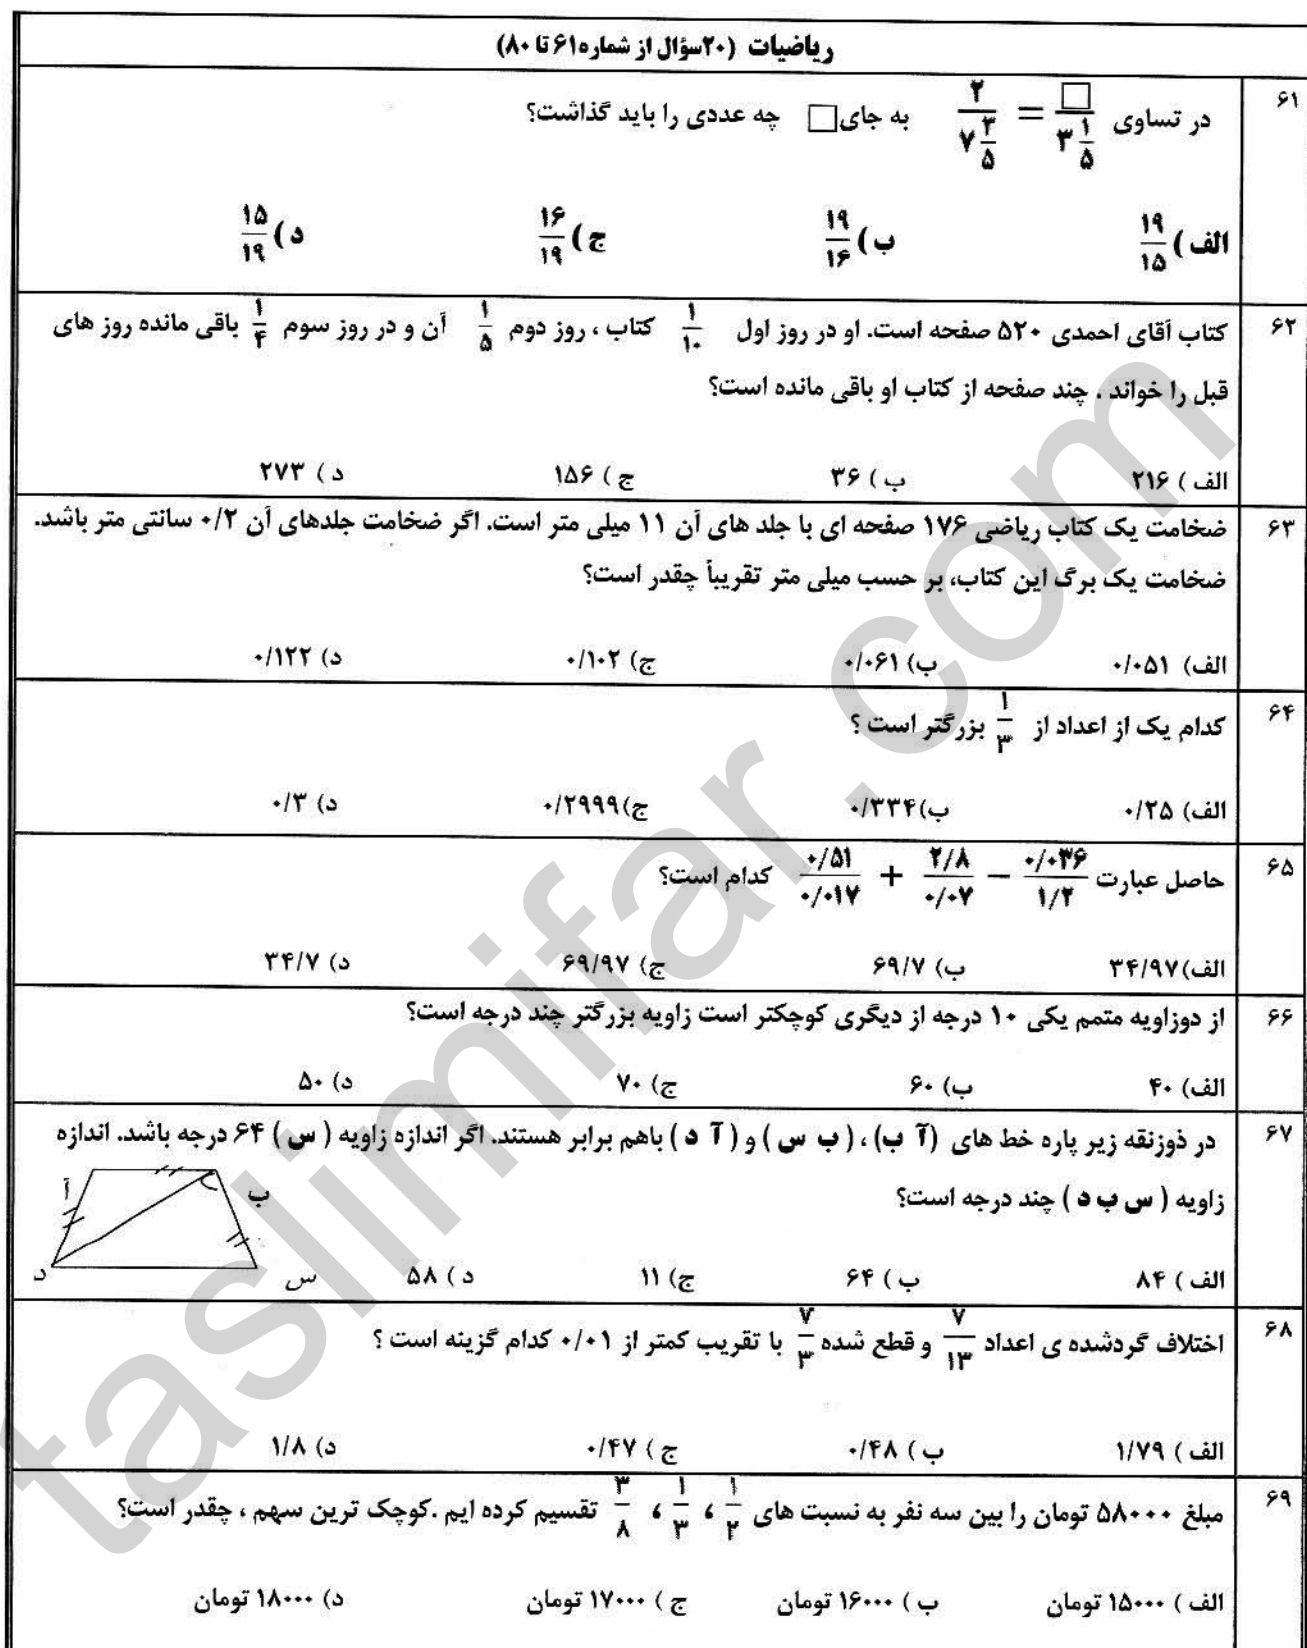 ریاضیات (۲۰سؤال از شماره۶۱ تا ۸۰)
۶۱ در تساوی ۲/۷ ۳/۵ = □/۳ ۱/۵ به جای□ چه عددی را باید گذاشت؟
الف) ۱۹/۱۵ ب) ۱۹/۱۶ ج) ۱۶/۱۹ د) ۱۵/۱۹
۶۲ کتاب آقای احمدی ۵۲۰ صفحه است. او در روز اول ۱/۱۰ کتاب ، روز دوم ۱/۵ آن و در روز سوم ۱/۴ باقی مانده روز های
قبل را خواند . چند صفحه از کتاب او باقی مانده است؟
الف ) ۲۱۶ ب ) ۳۶ ج ) ۱۵۶ د ) ۲۷۳
۶۳ ضخامت یک کتاب ریاضی ۱۷۶ صفحه ای با جلد های آن ۱۱ میلی متر است. اگر ضخامت جلدهای آن ۰/۲ سانتی متر باشد.
ضخامت یک برگ این کتاب، بر حسب میلی متر تقریباً چقدر است؟
الف) ۰/۰۵۱ ب) ۰/۰۶۱ ج) ۰/۱۰۲ د) ۰/۱۲۲
۶۴ کدام یک از اعداد از ۱/۳ بزرگتر است ؟
الف) ۰/۲۵ ب)۰/۳۳۴ ج)۰/۲۹۹۹ د) ۰/۳
۶۵ حاصل عبارت ۰/۵۱/۰/۰۱۷ + ۲/۸/۰/۰۷ − ۰/۰۳۶/۱/۲ کدام است؟
الف)۳۴/۹۷ ب) ۶۹/۷ ج) ۶۹/۹۷ د) ۳۴/۷
۶۶ از دوزاویه متمم یکی ۱۰ درجه از دیگری کوچکتر است زاویه بزرگتر چند درجه است؟
الف) ۴۰ ب) ۶۰ ج) ۷۰ د) ۵۰
۶۷ در ذوزنقه زیر پاره خط های (آ ب) ، ( ب س ) و ( آ د ) باهم برابر هستند. اگر اندازه زاویه ( س ) ۶۴ درجه باشد. اندازه
زاویه ( س ب د ) چند درجه است؟
آ ب
د س
الف ) ۸۴ ب ) ۶۴ ج) ۱۱ د ) ۵۸
۶۸ اختلاف گردشده ی اعداد ۷/۱۳ و قطع شده ۷/۳ با تقریب کمتر از ۰/۰۱ کدام گزینه است ؟
الف ) ۱/۷۹ ب ) ۰/۴۸ ج ) ۰/۴۷ د) ۱/۸
۶۹ مبلغ ۵۸۰۰۰ تومان را بین سه نفر به نسبت های ۱/۲ ، ۱/۳ ، ۳/۸ تقسیم کرده ایم .کوچک ترین سهم ، چقدر است؟
الف ) ۱۵۰۰۰ تومان ب ) ۱۶۰۰۰ تومان ج ) ۱۷۰۰۰ تومان د) ۱۸۰۰۰ تومان
taslimifar.com